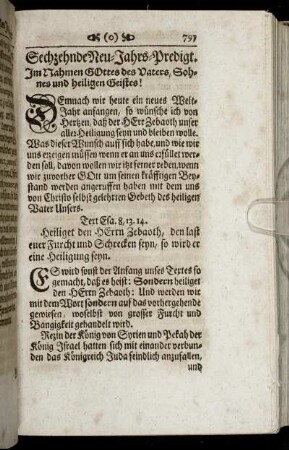 (o) 797
Sechzehnde Neu-Jahrs-Predigt.
Im Nahmen GOttes des Vaters, Soh-
nes und heiligen Geistes!
DEmnach wir heute ein neues Welt-
Jahr anfangen, so wünsche ich von
Hertzen, daß der HErr Zebaoth unser
aller Heiligung seyn und bleiben wolle.
Was dieser Wunsch auff sich habe, und wie wir
uns erzeigen müssen wenn er an uns erfüllet wer-
den soll, davon wollen wir itzt ferner reden, wenn
wir zuvorher GOtt um seinen kräfftigen Bey-
stand werden angeruffen haben mit dem uns
von Christo selbst gelehrten Gebeth des heiligen
Vater Unsers.
Text Esa. 8, 13. 14.
Heiliget den HErrn Zebaoth, den last
euer Furcht und Schrecken seyn, so wird er
eine Heiligung seyn.
ES wird sonst der Anfang unses Textes so
gemacht, daß es heist: Sondern heiliget
den HErrn Zebaoth: Und werden wir
mit dem Wort sondern auf das vorhergehende
gewiesen, woselbst von grosser Furcht und
Bangigkeit gehandelt wird.
Rezin der König von Syrien und Pekah der
König Israel hatten sich mit einander verbun-
den das Königreich Juda feindlich anzufallen,
und